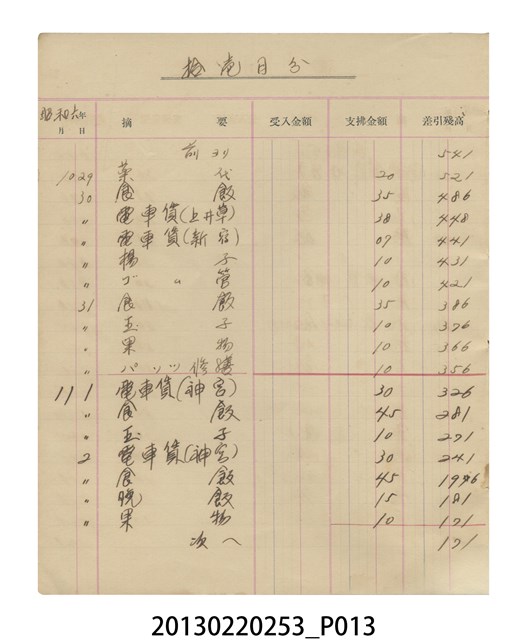 拾壱月分
昭和六年
月 日 摘要 受入金額 支拂金額 差引殘高
前ヨリ 541
10 29 菜代 20 521
30 食飯 35 486
〃 電車賃(上井草) 38 448
〃 電車賃(新宿) 07 441
〃 楊子 10 431
〃 ゴム管 10 421
31 食飯 35 386
〃 玉子 10 376
〃 果物 10 366
〃 パンツ修繕 10 356
11 1 電車賃(神宮) 30 326
〃 食飯 45 281
〃 玉子 10 271
2 電車賃(神宮) 30 241
〃 食飯 45 196
〃 晩飯 15 181
〃 果物 10 171
次へ 171
20130220253_P013